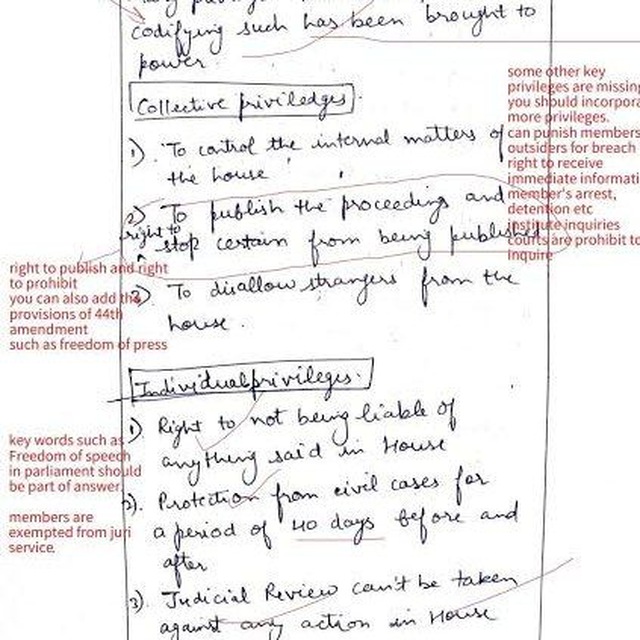 codifying such has been brought to
power.
Collective priviledges.
1). To control the internal matters of
the house
2) To publish the proceedings and
right to
stop certain from being published
3). To disallow strangers from the
house.
some other key
privileges are missing
you should incorpora
more privileges.
can punish members
outsiders for breach
right to receive
immediate informati
member's arrest,
detention etc
institute inquiries
courts are prohibit to
inquire
right to publish and right
to prohibit
you can also add the
provisions of 44th
amendment
such as freedom of press
Individual privileges.
1) Right to not being liable of
anything said in House
2). Protection from civil cases for
a period of 40 days before and
after
3). Judicial Review can't be taken
against any action in House
key words such as
Freedom of speech
in parliament should
be part of answer.
members are
exempted from juri
service.